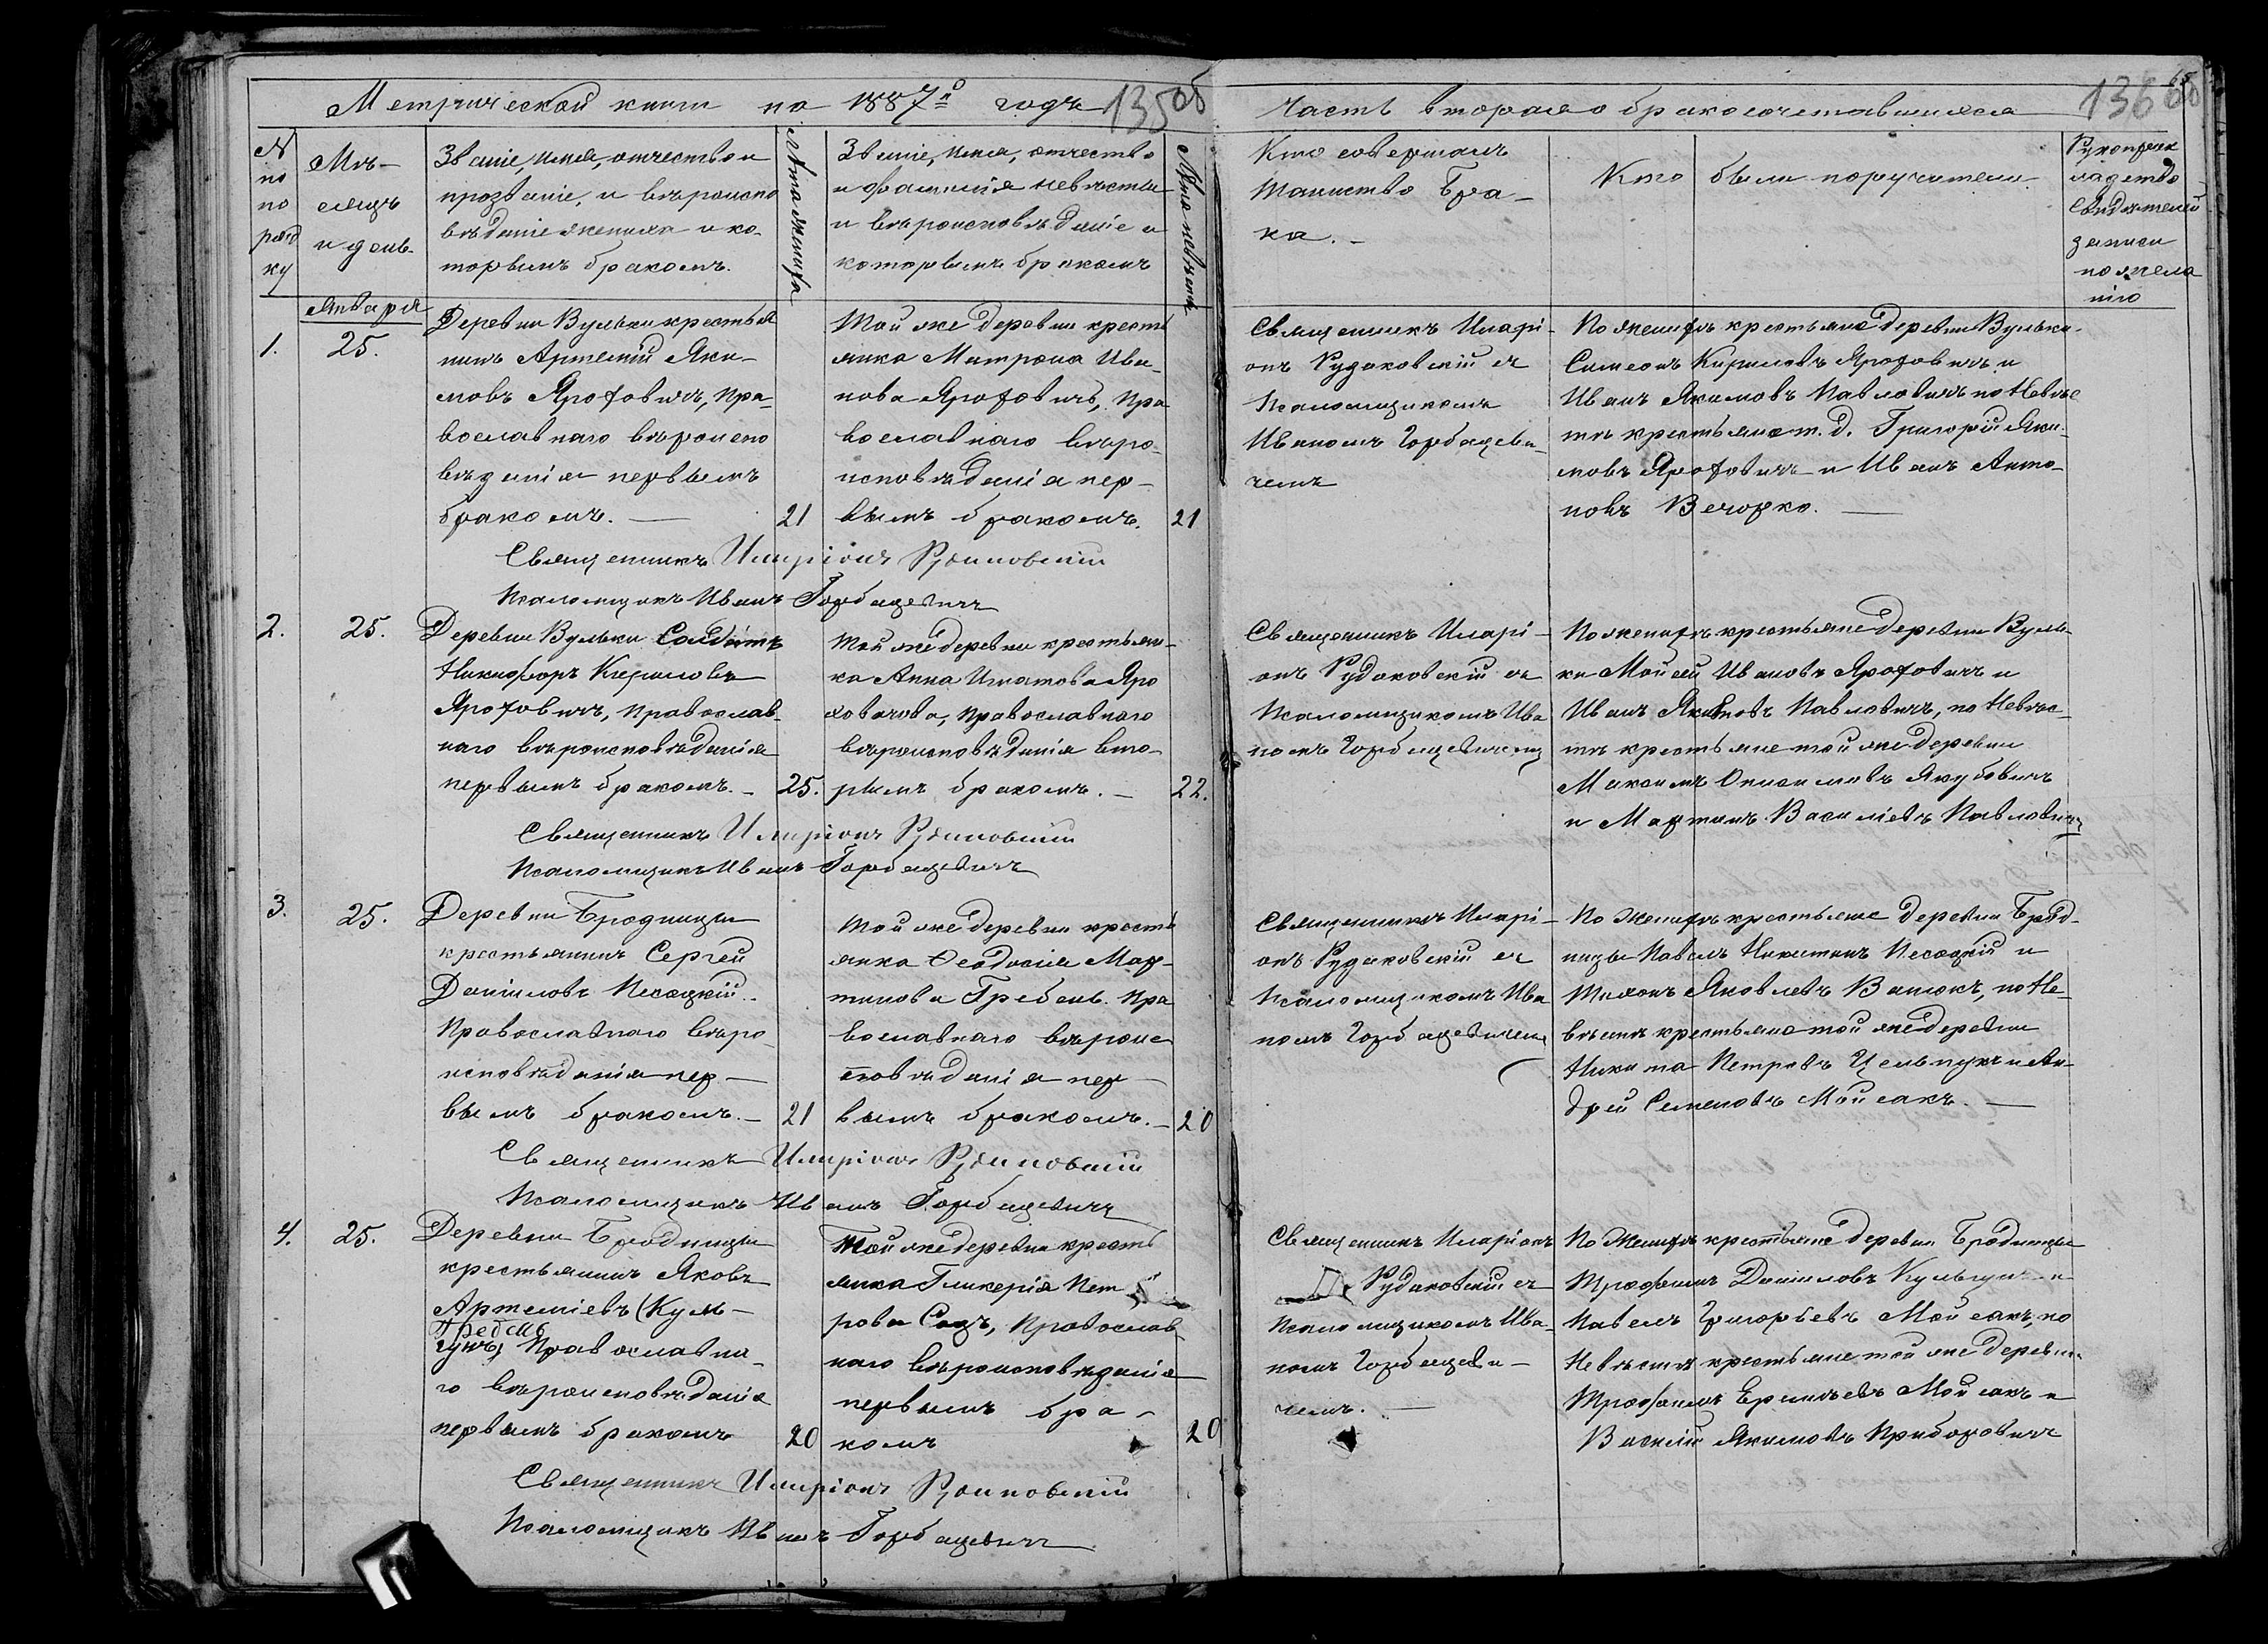 Метрической книги на 1887й годъ
135об
Часть вторая о бракосочетавшихся
136
№ по порядку
Мѣ-
сяцъ
и день.
Званіе, имя, отчество и
прозваніе, и вѣроиспо
вѣданіе жениха и ко-
торымъ бракомъ.
Лѣта жениха
Званіе, имя, отчество
и фамилія невѣсты
и вѣроисповѣданіе и
которымъ бракомъ
Лѣта невѣсты
Кто совершалъ
таинство бра-
ка.-
Кто были поручители.
Января
1.
25.
Деревни Вульки крестья
нинъ Артемій Яки-
мовъ Ярофовичъ, пра-
вославнаго вѣроиспо
вѣданія первымъ
бракомъ. —
21
Той же деревни кресть
янка Матрона Ива-
нова Ярофовичъ, пра
вославнаго вѣро-
исповѣданія пер-
вымъ бракомъ.
21
Священникъ Иларі-
онъ Рудаковскій съ
псаломщикомъ
Иваномъ Горбацеви-
чемъ
По женихѣ крестьяне деревни Вульки
Симеонъ Кириловъ Ярофовичъ и
Иванъ Якимовъ Павловичъ по Невѣс
тѣ крестьяне т. д. Григорій Яки-
мовъ Ярофовичъ и Иванъ Анто-
новъ Вечорко. —
Священникъ Иларіонъ Рудаковскій
Псаломщикъ Иванъ Горбацевичъ
2.
25.
Деревни Вульки Солдатъ
Никифоръ Кириловъ
Ярофовичъ, православ-
наго вѣроисповѣданія
первымъ бракомъ. -
25.
Той же деревни крестьян-
ка Анна Игнатова Яро
ховичова, православнаго
вѣроисповѣданія вто-
рымъ бракомъ. -
22.
Священникъ Иларі-
онъ Рудаковскій съ
псаломщикомъ Ива
номъ Горбацевичемъ
По женихѣ крестьяне деревни Вуль-
ки Мойсей Ивановъ Ярофовичъ и
Иванъ Якимовъ Павловичъ, по Невѣс-
тѣ крестьяне той же деревни
Максимъ Онисимовъ Якубовичъ
и Мартинъ Василіевъ Павловичъ
Священникъ Иларіонъ Рудаковскій
Псаломщикъ Иванъ Горбацевичъ
3.
25.
Деревни Бродницы
крестьянинъ Сергей
Даніиловъ Песоцкій.
Православнаго вѣро-
исповѣданія пер-
вымъ бракомъ. -
21
Той же деревни кресть
янка Ѳеодосія Мар-
тинова Гребень. Пра
вославнаго вѣроис
повѣданія пер-
вымъ бракомъ. -
20
Священникъ Иларі-
онъ Рудаковскій съ
Псаломщикомъ Ива
номъ Горбацевичемъ
По Женихѣ крестьяне деревни Брод-
ницы Павелъ Никитинъ Песоцкій и
Тихонъ Яковлевъ Ванюкъ, по Не-
вѣстѣ крестьяне той же деревни
Никита Петровъ и Ан-
дрей Семеновъ Мойсакъ. —
Священникъ Иларіонъ Рудаковскій
Псаломщикъ Иванъ Горбацевичъ
4.
25.
Деревни Бродницы
крестьянинъ Яковъ
Артеміевъ (Куль-
Гребень
гунъ) Православна-
го вѣроисповѣданія
первымъ бракомъ
20
Той же деревни кресть
янка Гликерія Пет
рова Сацъ, Православ
наго вѣроисповѣданія
первымъ бра-
комъ
20
Священникъ Иларіонъ
Рудаковскій съ
Псаломщикомъ Ива-
номъ Горбацеви-
чемъ. —
По Женихѣ крестьяне деревни Бродницы
Трофимъ Даніиловъ Кульгунъ и
Павелъ Григорьевъ Мойсакъ, по
Невѣстѣ крестьяне той же деревни
Трофимъ Мойсакъ и
Василій Якимовъ Приборовичъ
Священникъ Иларіонъ Рудаковскій
Псаломщикъ Иванъ Горбацевичъ